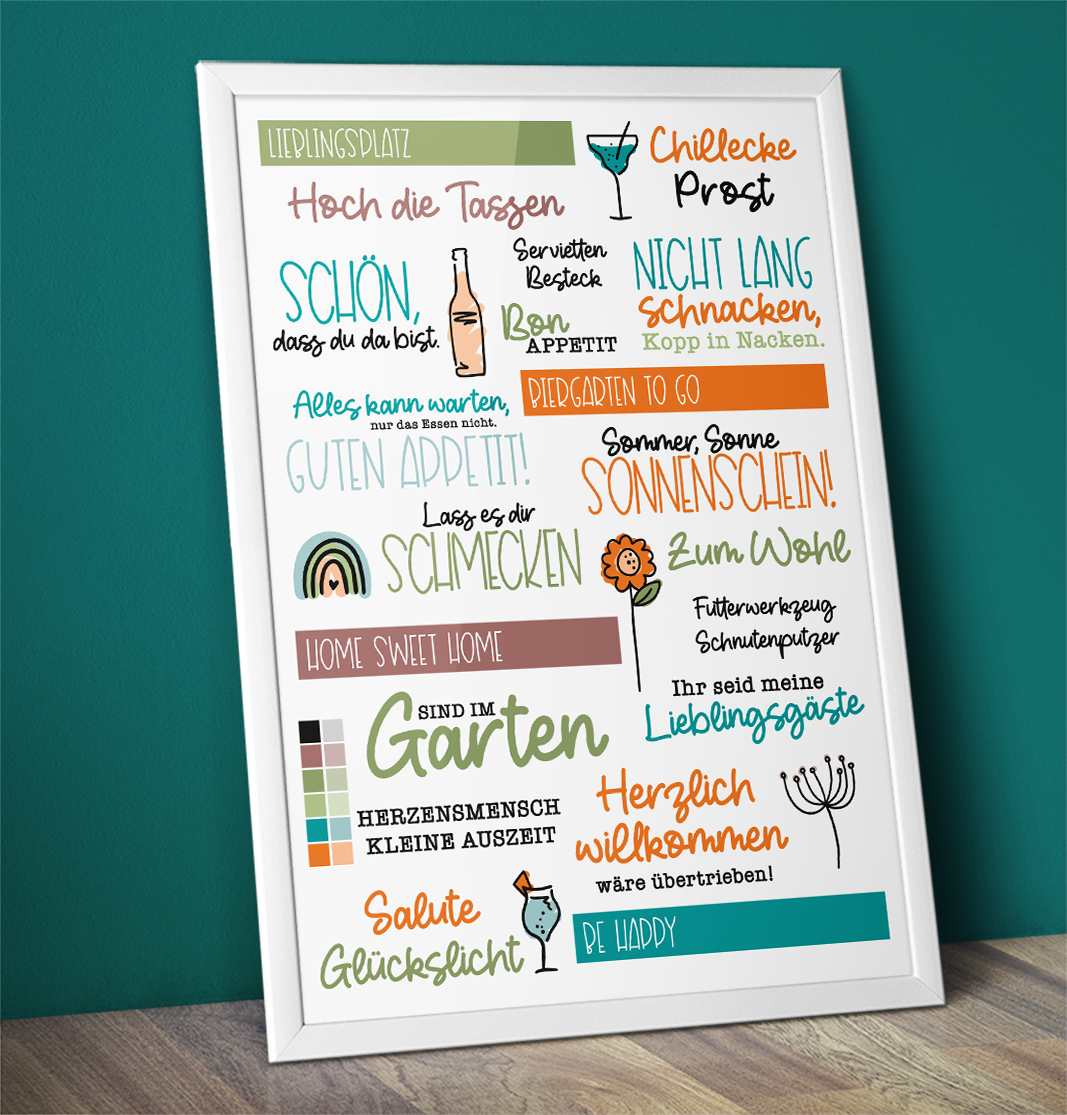 LIEBLINGSPLATZ
Chillecke
Prost
Hoch die Tassen
SCHÖN,
dass du da bist.
Servietten
Besteck
Bon
APPETIT
NICHT LANG
schnacken,
Kopp in Nacken.
BIERGARTEN TO GO
Alles kann warten,
nur das Essen nicht.
GUTEN APPETIT!
Sommer, Sonne
SONNENSCHEIN!
Lass es dir
SCHMECKEN
Zum Wohl
Futterwerkzeug
Schnutenputzer
HOME SWEET HOME
Ihr seid meine
Lieblingsgäste
SIND IM
Garten
HERZENSMENSCH
KLEINE AUSZEIT
Herzlich
willkommen
wäre übertrieben!
Salute
Glückslicht
BE HAPPY